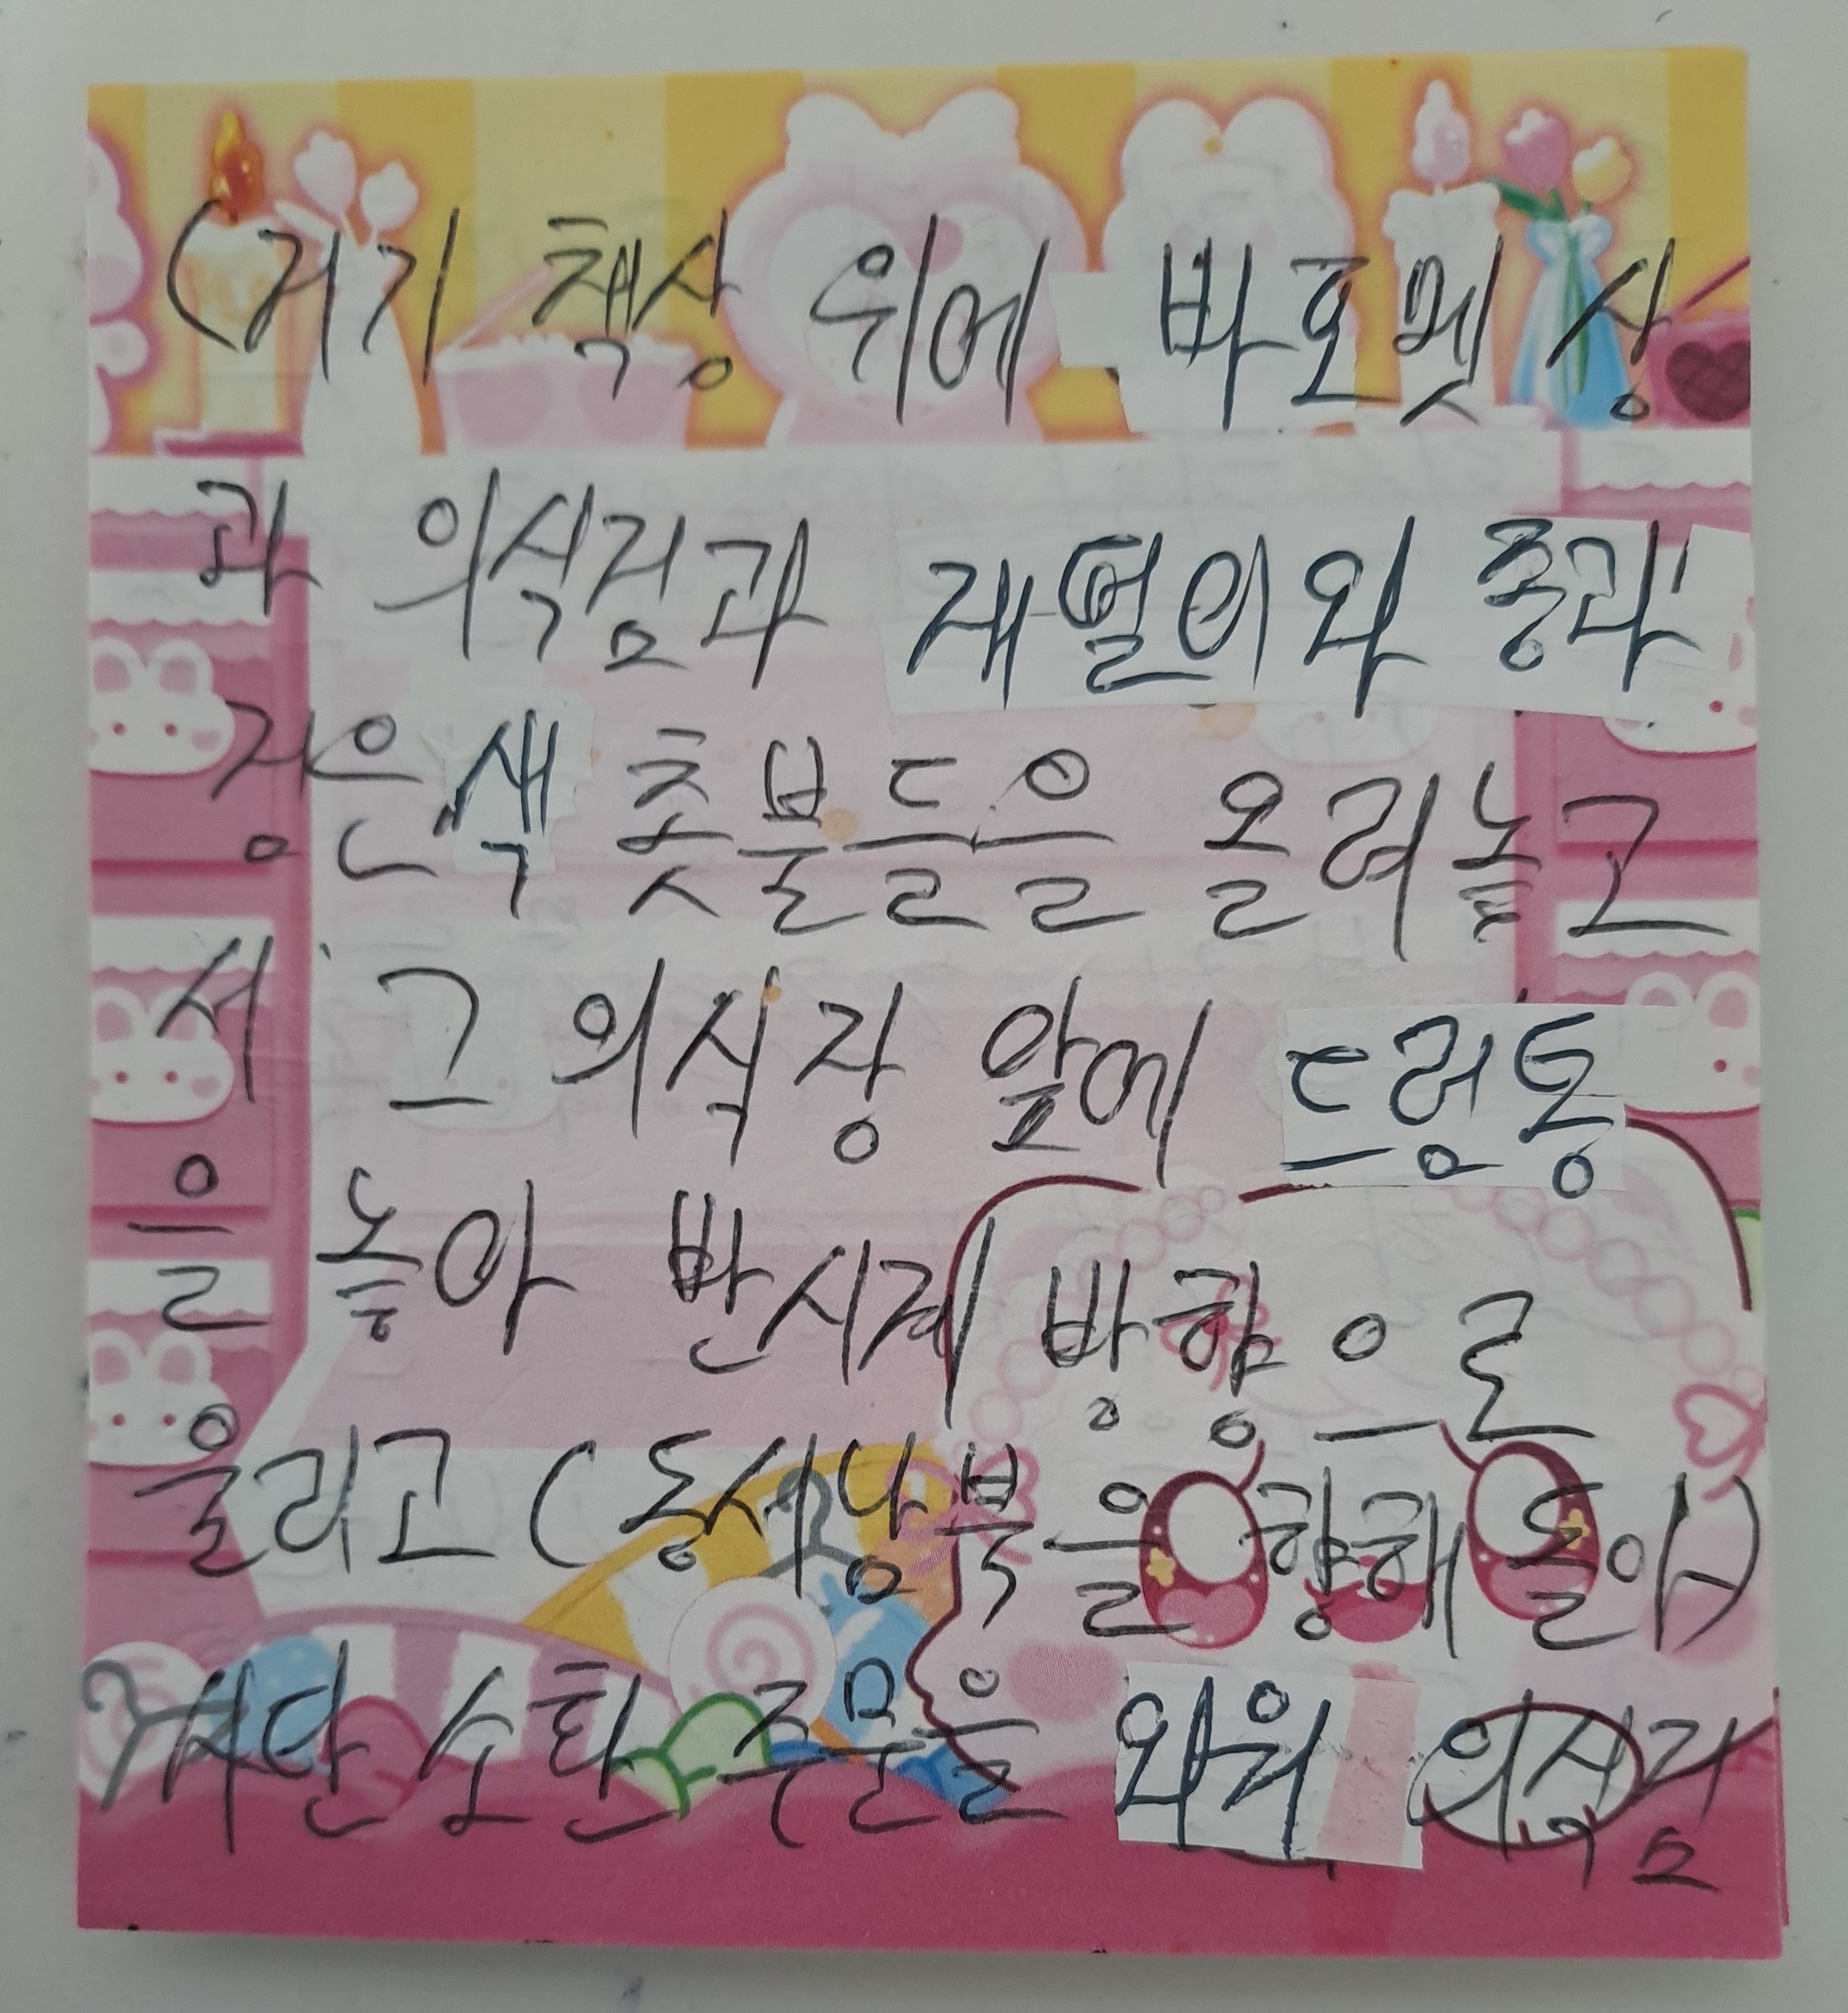 (거기 책상 위에 바포멧 상
과 의식검과 재떨이와 종과
검은색 촛불들을 올려놓고
서 그 의식장 앞에 드럼통
을 놓아 반시계 방향으로
울리고 (동서남북을 향해 돌아)
사탄 소환 주문을 외워 의식검